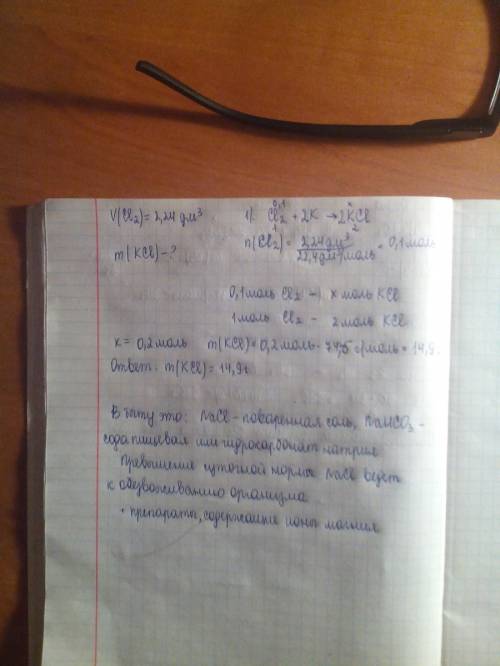 V(Cl₂) = 2,24 дм³ 1) Cl₂ + 2K → 2KCl
0,1 x
1 2
m(KCl) - ? n(Cl₂) = 2,24 дм³ / 22,4 дм³/моль = 0,1 моль
0,1 моль Cl₂ - x моль KCl
1 моль Cl₂ - 2 моль KCl
x = 0,2 моль m(KCl) = 0,2 моль · 74,5 г/моль = 14,9г
Ответ: m(KCl) = 14,9г
В быту это: NaCl - поваренная соль, NaHCO₃ -
сода пищевая или гидрокарбонат натрия
Превышение суточной нормы NaCl ведет
к обезвоживанию организма
• препараты, содержащие ионы магния